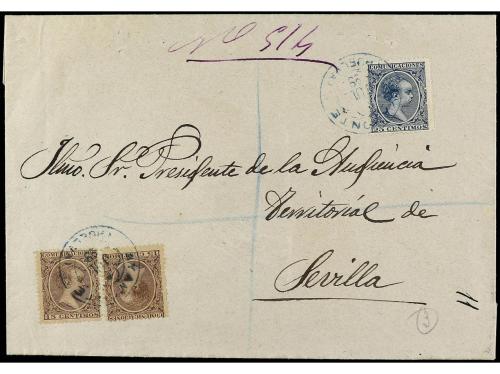 Nº 514
COMUNICACIONES
25 CENTIMOS
Ilmo. Sr. Presidente de la Audiencia
Territorial de
Sevilla
15 CENTIMOS
3